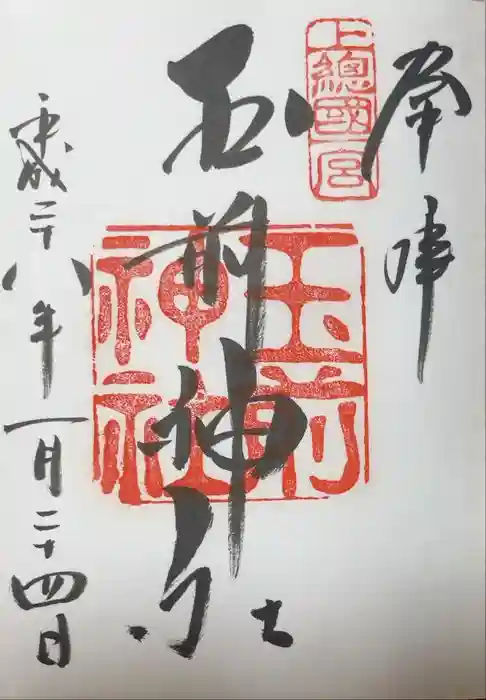 奉拝
上總國一宮
玉前神社
玉前
神社
平成二十八年一月二十四日